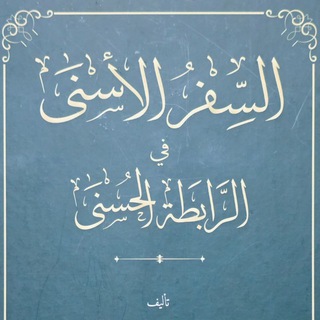 السِّفرُ الأسنَى
في
الرَّابطة الحُسنى
تأليف